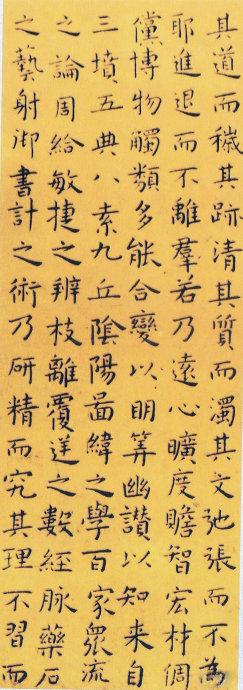 其道而穢其跡清其質而濁其文弛張而不為
耶進退而不離羣若乃遠心曠度瞻智宏材倜
儻博物觸類多能合變以明筭幽讚以知来自
三墳五典八素九丘陰陽啚緯之學百家衆流
之論周給敏捷之辨枝離覆逆之數經脉藥石
之藝射御書計之術乃研精而究其理不習而